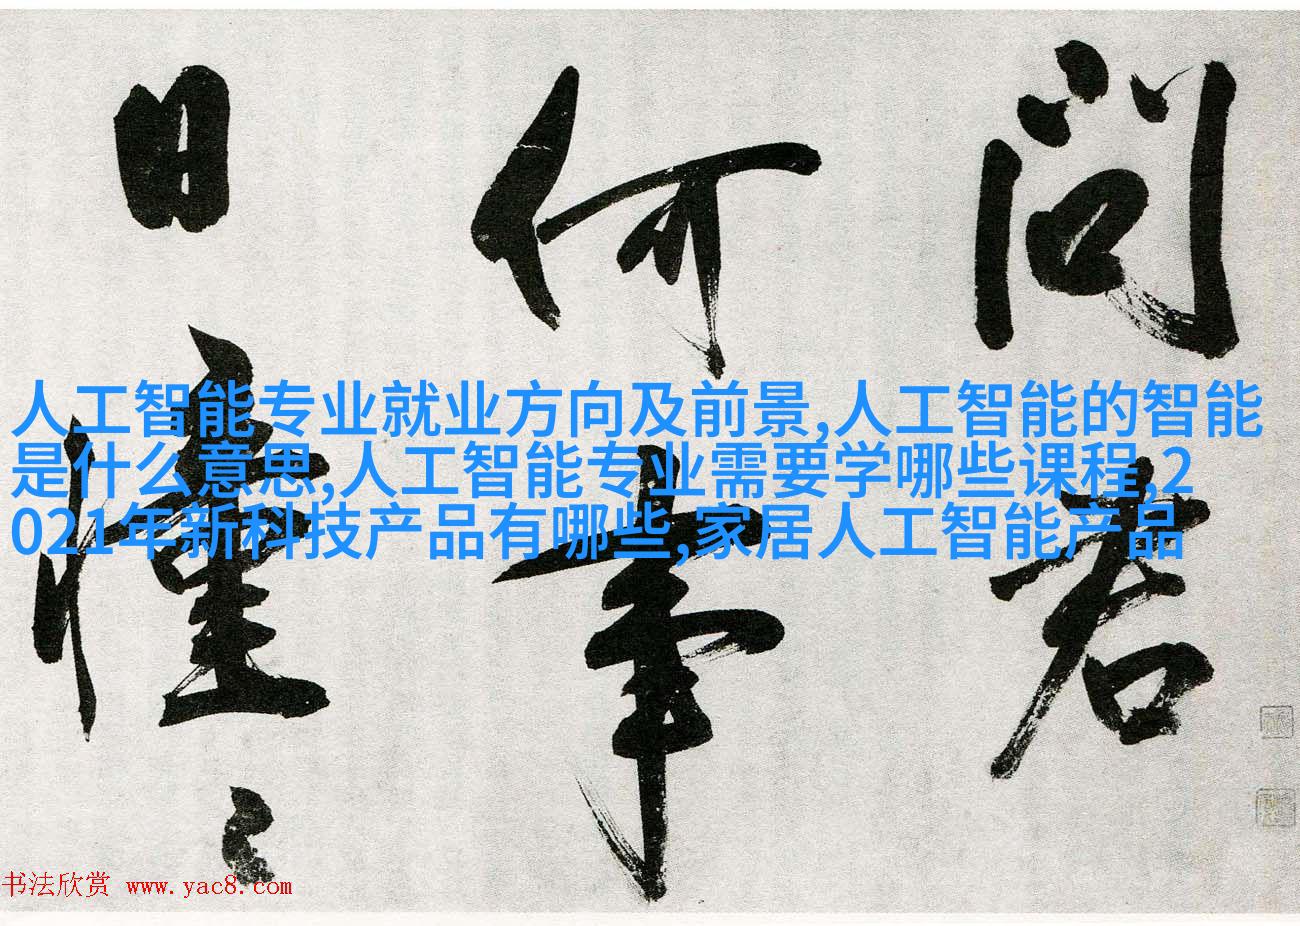 问君
何事
日憧々
人工智能专业就业方向及前景,人工智能的智能
是什么意思,人工智能专业需要学哪些课程,2
021年新科技产品有哪些,家居人工智能产品
书法欣赏 www.yac8.com